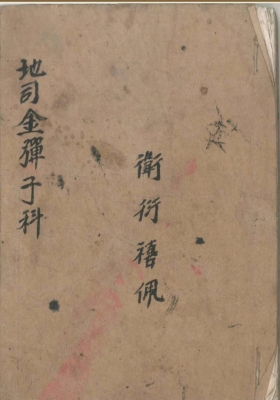 地司金彈子科
衛衍禧佩